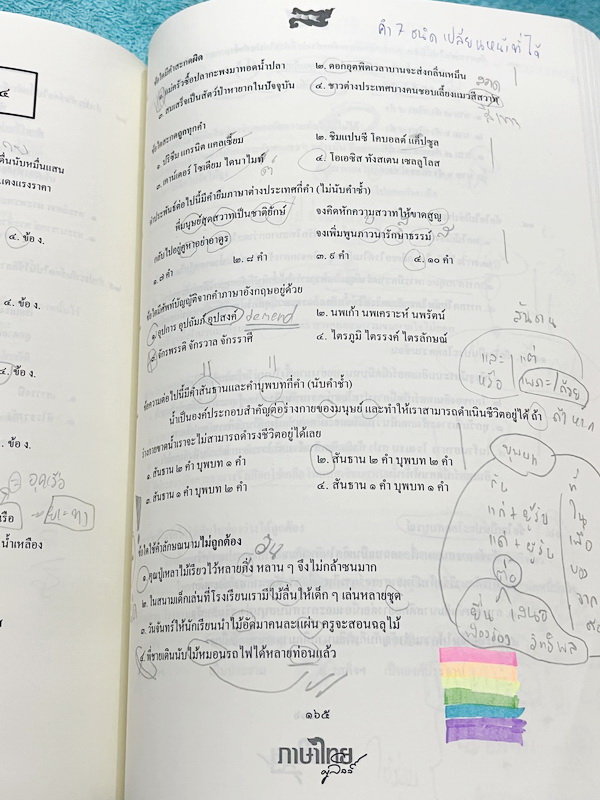 คำ 7 ชนิด เปลี่ยนหน้าที่ได้
ข้อใดมีคำสะกดผิด
๑. แม่ครัวซื้อปลากะพงมาทอดน้ำปลา
๒. ดอกอุตพิดเวลาบานจะส่งกลิ่นเหม็น
๓. สมเสร็จเป็นสัตว์ป่าหายากในปัจจุบัน
๔. ชาวต่างประเทศบางคนชอบเลี้ยงแมวสีสวาท
สีเทา
ข้อใดสะกดถูกทุกคำ
๑. ปรึซึม แกรนิต แคลเซี้ยม
๒. ชิมแปนซี โคบอลต์ แค็ปซูล
๓. เคาน์เตอร์ โซเดียม ไดนาไมท์
๔. โอเอซิส ทังสเตน เซลลูโลส
คำประพันธ์ต่อไปนี้มีคำยืมภาษาต่างประเทศกี่คำ (ไม่นับคำซ้ำ)
ที่มนุษย์สุดสวาทเป็นชาติยักษ์
จงคิดหักความสวาทให้ขาดสูญ
กลับไปอยู่คูหาอย่าอาดูร
จงเพิ่มพูนภาวนารักษาธรรม์
๑. ๗ คำ
๒. ๘ คำ
๓. ๙ คำ
๔. ๑๐ คำ
ข้อใดมีศัพท์บัญญัติจากคำภาษาอังกฤษอยู่ด้วย
๑. อุปการ อุปถัมภ์ อุปสงค์
demend
๒. นพเก้า นพเคราะห์ นพรัตน์
๓. จักรพรรดิ จักรวาล จักรราศี
๔. ไตรภูมิ ไตรรงค์ ไตรลักษณ์
สันธาน
และ
แต่
หรือ
เพราะ
ด้วย
ข้อความต่อไปนี้มีคำสันธานและคำบุพบทกี่คำ (นับคำซ้ำ)
น้ำเป็นองค์ประกอบสำคัญต่อร่างกายของมนุษย์ และทำให้เราสามารถดำเนินชีวิตอยู่ได้ ถ้า
ถ้าหาก
ร่างกายขาดน้ำเราจะไม่สามารถดำรงชีวิตอยู่ได้เลย
๑. สันธาน ๒ คำ บุพบท ๑ คำ
๒. สันธาน ๒ คำ บุพบท ๒ คำ
๓. สันธาน ๑ คำ บุพบท ๒ คำ
๔. สันธาน ๑ คำ บุพบท ๑ คำ
บุพบท
กับ
ที่
แก่ + ผู้รับ
ใน
แด่ + ผู้รับ
เพื่อ
ต่อ
ของ
จาก
ยื่น เสนอ
อิทธิพล
ข้อใดใช้คำลักษณนามไม่ถูกต้อง
อัน
๑. คุณปู่เหลาไม้เรียวไว้หลายกิ่ง หลาน ๆ จึงไม่กล้าซนมาก
๒. ในสนามเด็กเล่นที่โรงเรียนเรามีไม้ลื่นให้เด็ก ๆ เล่นหลายชุด
๓. วันจันทร์ให้นักเรียนนำไม้อัดมาคนละแผ่น ครูจะสอนฉลุไม้
๔. พี่ชายเดินนับไม้หมอนรถไฟได้หลายท่อนแล้ว
๑๖๕
ภาษาไทย
๔
ตื่นนับหมื่นแสน
แดงแรงราคา
๔. ข้อ ง.
๔. ข้อ ง.
๔. ข้อ ง.
๔. ข้อ ง.
น้ำเหลือง